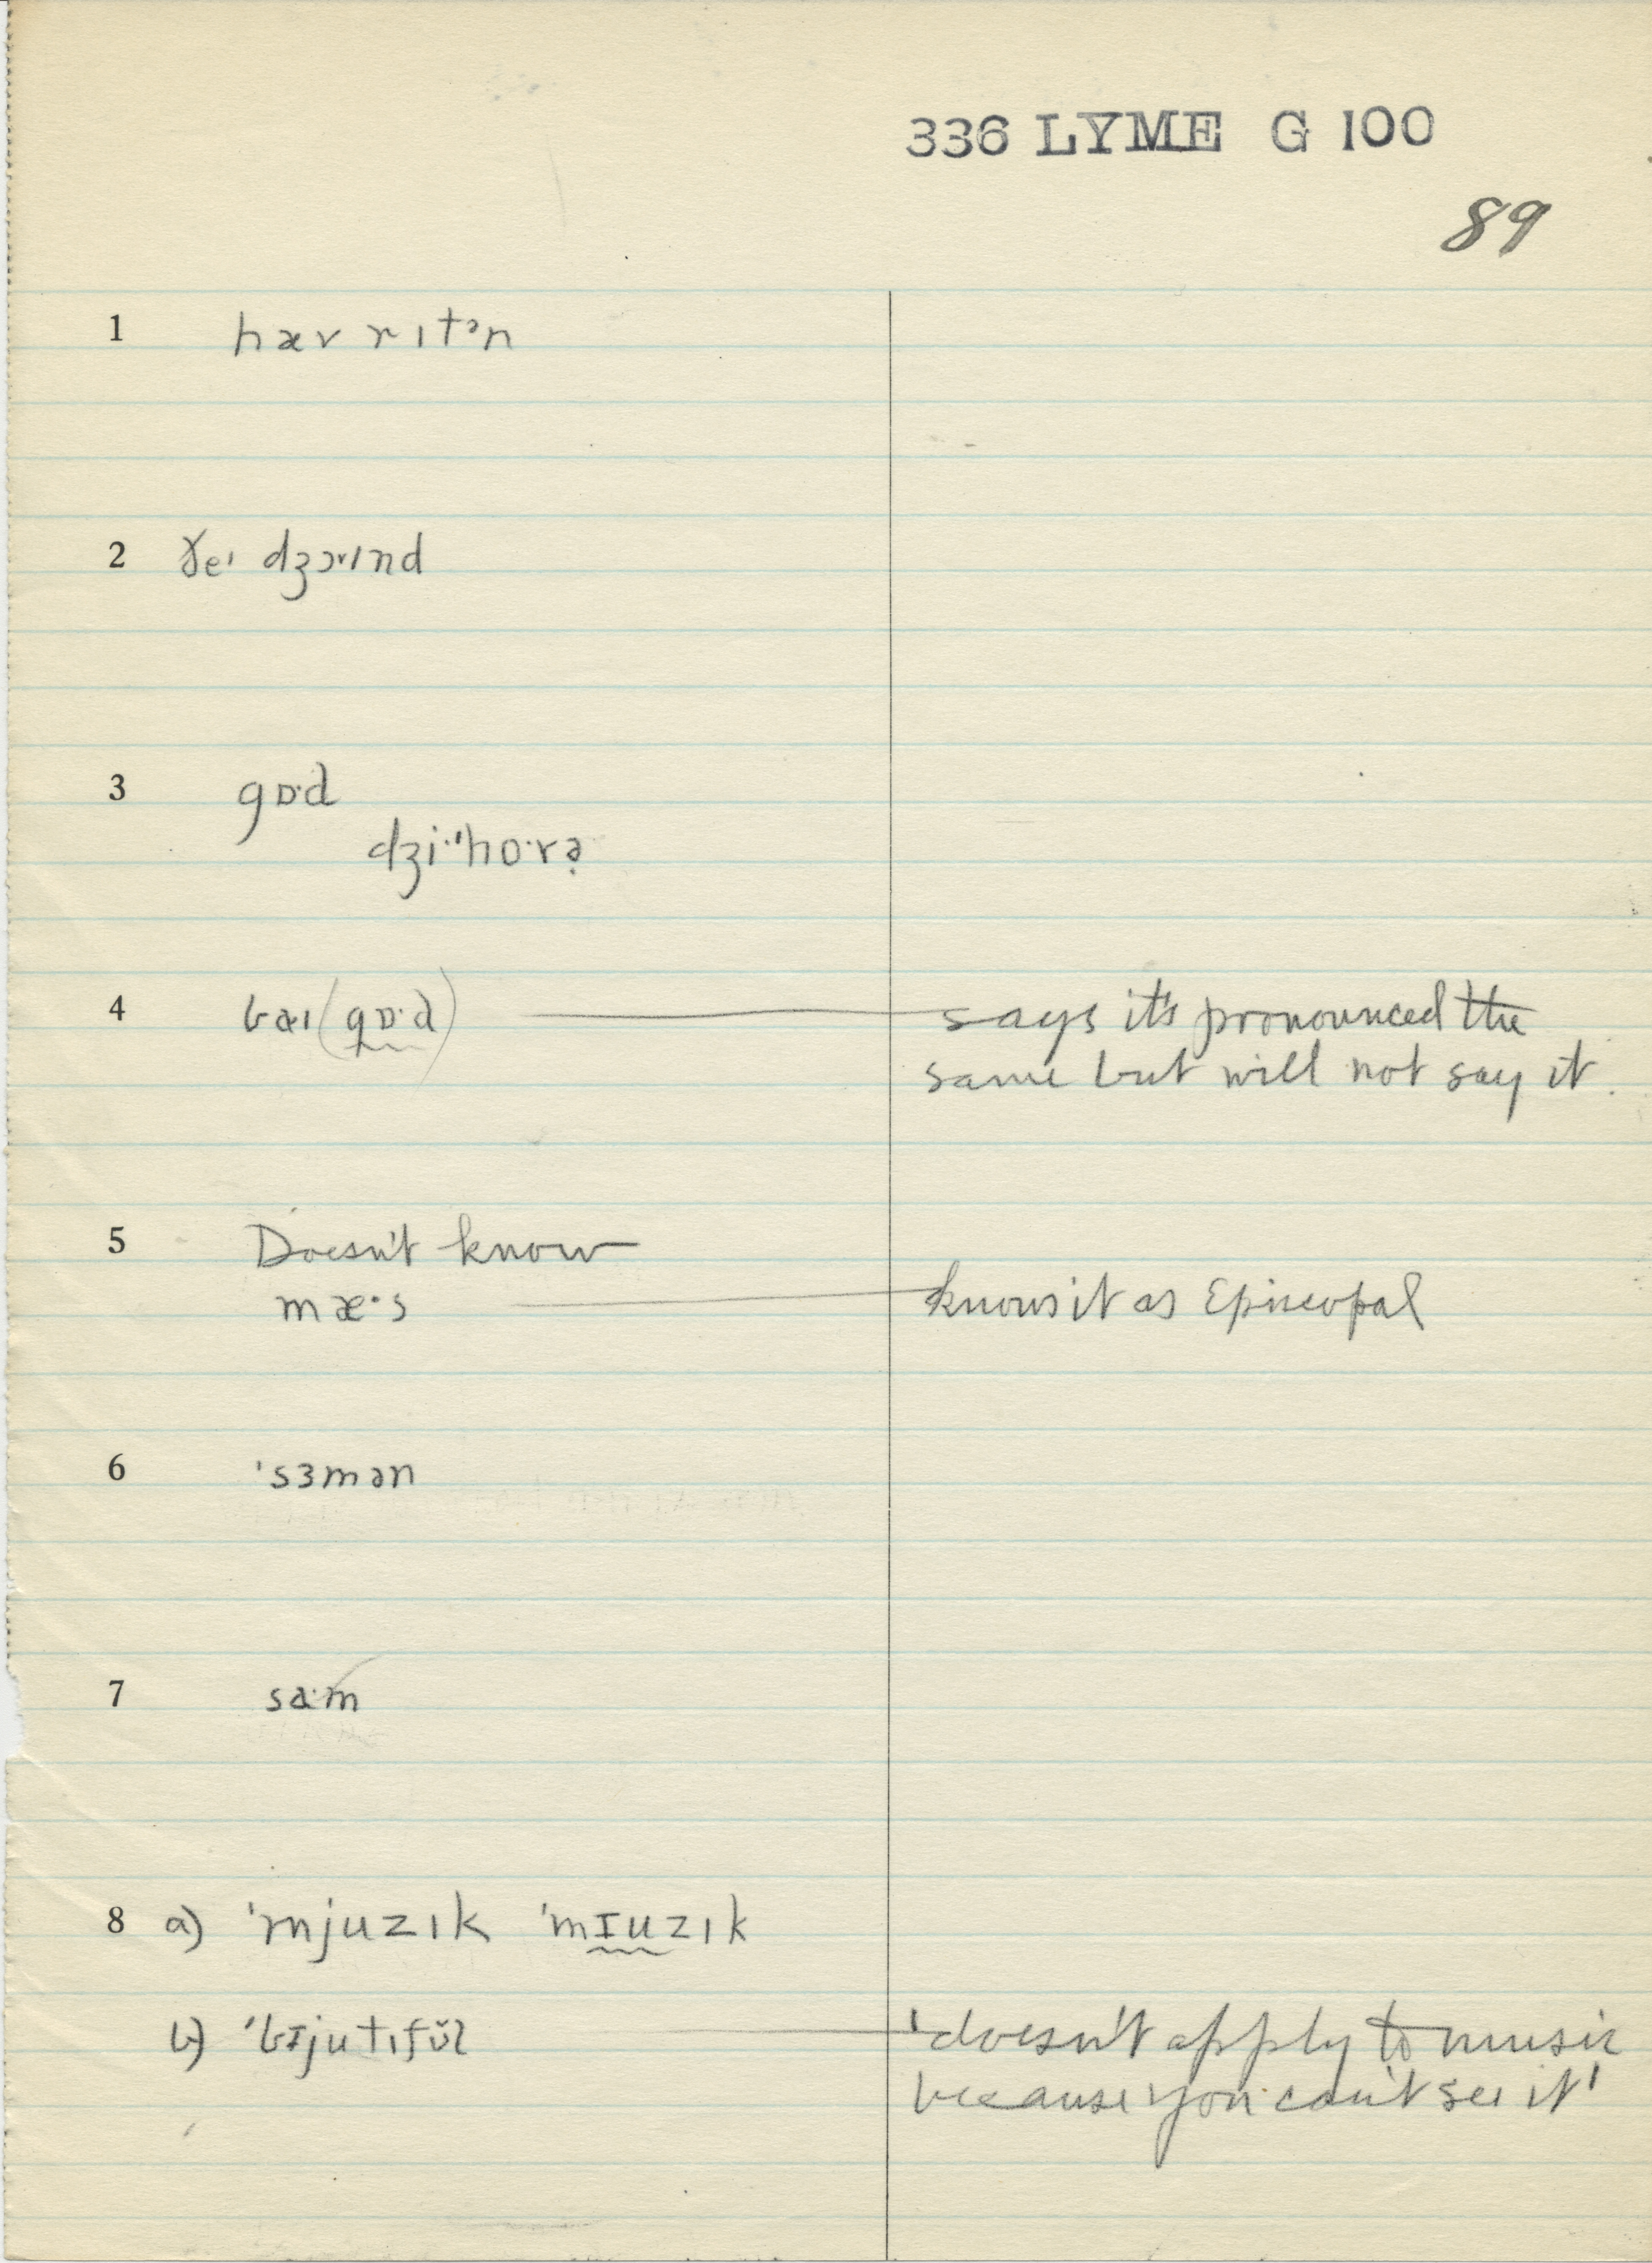 336 LYME G 100
89
1 hæv rɪtᵊn
2 ðeɪ dʒɔɪnd
3 gɒ·d
dʒi·'ho·və
4 baɪ (gɒ·d) says it's pronounced the
same but will not say it.
5 Doesn't know
mæ·s knows it as Episcopal
6 'sɜmən
7 sa·m
8 a) 'mjuzɪk 'mɪuzɪk
b) 'bɪjutɪfŭl 'doesn't apply to music
because you can't see it'